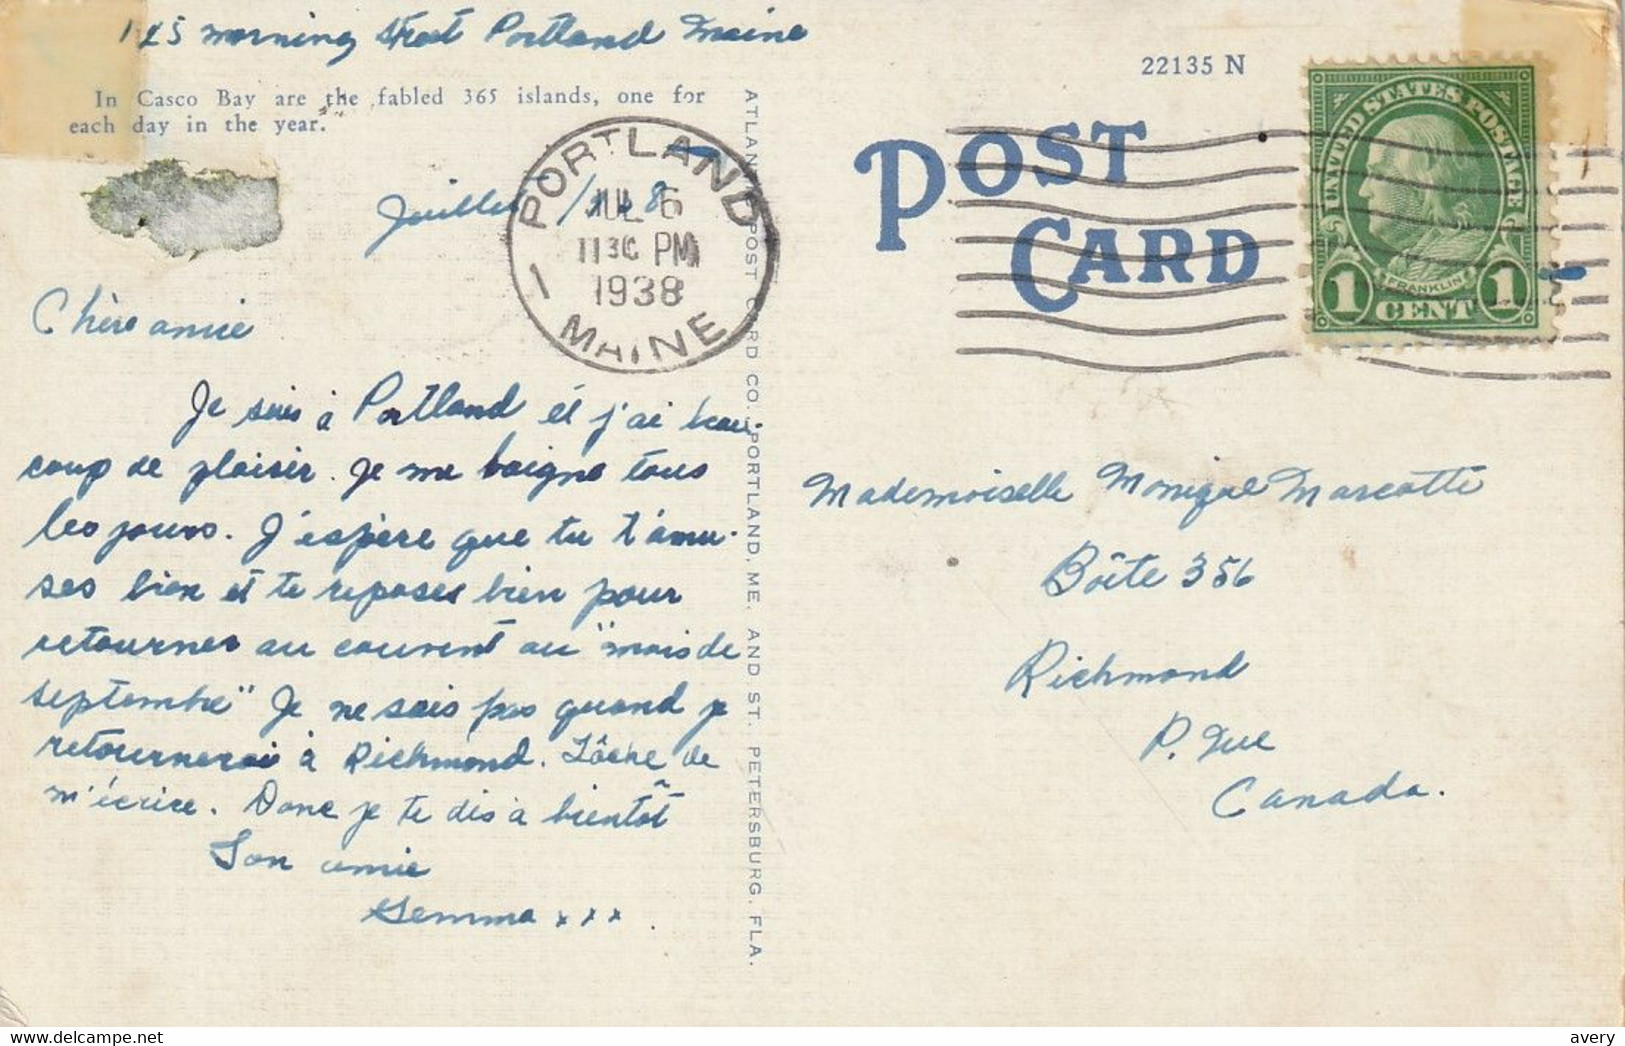 145 Morning Street Portland Maine
In Casco Bay are the fabled 365 islands, one for
each day in the year.
Juillet
PORTLAND
JUL 6
11 30 PM
1938
1
MAINE
Chère amie
Je suis à Portland et j'ai beau-
coup de plaisir. Je me baigne tous
les jours. J'espère que tu t'amu-
ses bien et te reposes bien pour
retourner au couvent au "mois de
septembre" Je ne sais pas quand je
retournerai à Richmond. Tâche de
m'écrire. Donc je te dis à bientôt
Ton amie
Gemma x x x
ATLANTIC POST CARD CO., PORTLAND, ME. AND ST. PETERSBURG, FLA.
22135 N
POST
CARD
UNITED STATES POSTAGE
FRANKLIN
1 CENT 1
Mademoiselle Monique Marcotte
Boîte 356
Richmond
P. Que
Canada.
avery